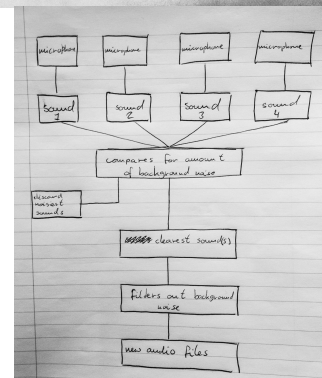 microphone
microphone
microphone
microphone
sound
1
sound
2
sound
3
sound
4
compares for amount
of background noise
discard
noisest
sounds
clearest sound(s)
filders out background
noise
new audio files